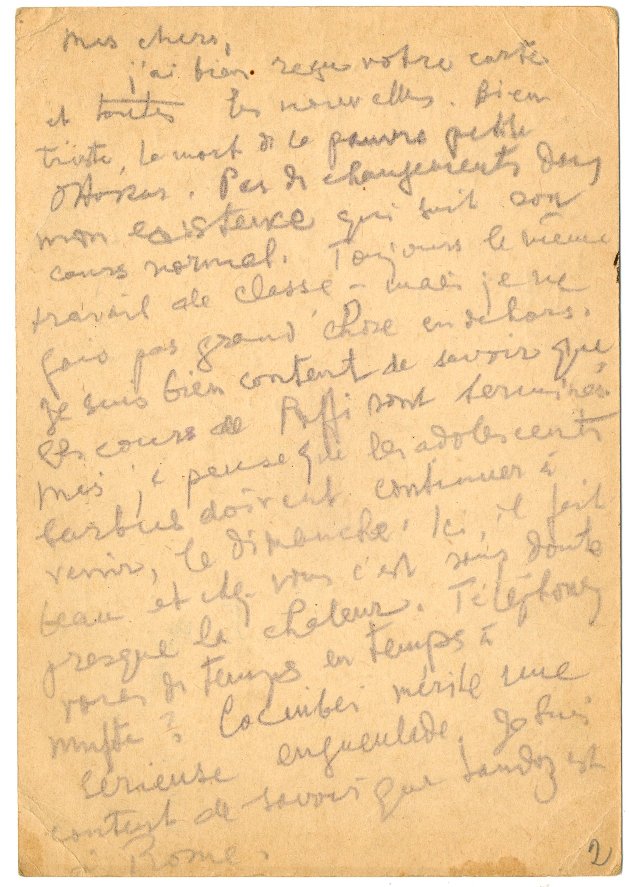 mes chers,
j'ai bien reçu votre carte
et toutes les nouvelles. Bien
triste, la mort de la pauvre petite
Pas de changements dans
mon existence qui suit son
cours normal. Toujours le même
travail de classe - mais je ne
fais pas grand'chose en dehors.
Je suis bien content de savoir que
les cours de Puffi sont terminés
mais je pense que les adolescents
barbus doivent continuer à
venir, le dimanche. Ici, il fait
beau et chez vous c'est sans doute
presque la chaleur. Téléphonez
vous de temps en temps à
? mérite une
sérieuse engueulade. Je suis
content de savoir que Sandoz est
à Rome.
2